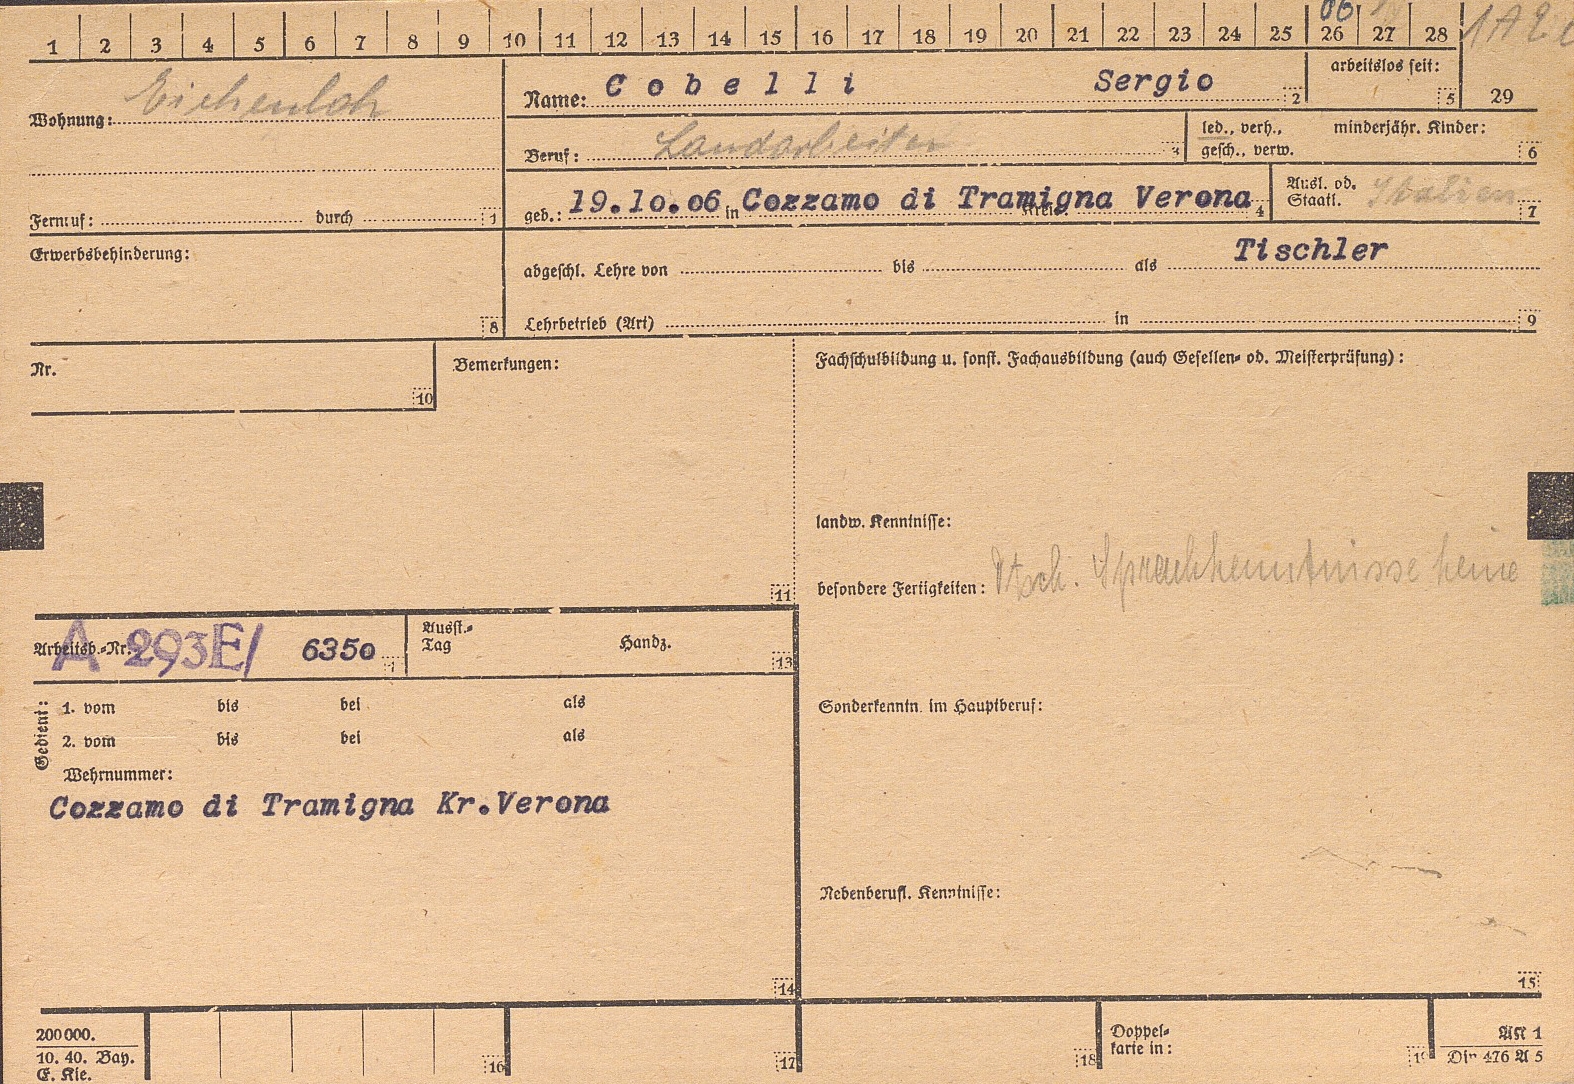 1 2 3 4 5 6 7 8 9 10 11 12 13 14 15 16 17 18 19 20 21 22 23 24 25 26 27 28
06
Wohnung: Eichenloh
Name: Cobelli Sergio 2
arbeitslos seit: 5
29
Beruf: Landarbeiter 3
led., verh., minderjähr. Kinder:
gesch., verw. 6
Fernruf: durch 1
geb.: 19.10.06 in Cozzamo di Tramigna Verona 4
Kreis
Ausl. od.
Staatl. Italien 7
Erwerbsbehinderung: 8
abgeschl. Lehre von bis als Tischler
Lehrbetrieb (Art) in 9
Nr. 10
Bemerkungen: 11
Fachschulbildung u. sonst. Fachausbildung (auch Gesellen- od. Meisterprüfung):
landw. Kenntnisse:
besondere Fertigkeiten: Dtsch. Sprachkenntnisse keine
Arbeitsb.-Nr. A 293E/ 6350
Ausst.-
Tag Handz. 13
Sonderkenntn. im Hauptberuf:
Gedient:
1. vom bis bei als
2. vom bis bei als
Wehrnummer:
Cozzamo di Tramigna Kr.Verona
14
Nebenberufl. Kenntnisse:
15
200000.
10. 40. Bay.
E. Kie.
16
17
18
Doppel-
karte in:
AK 1
Din 476 A 5